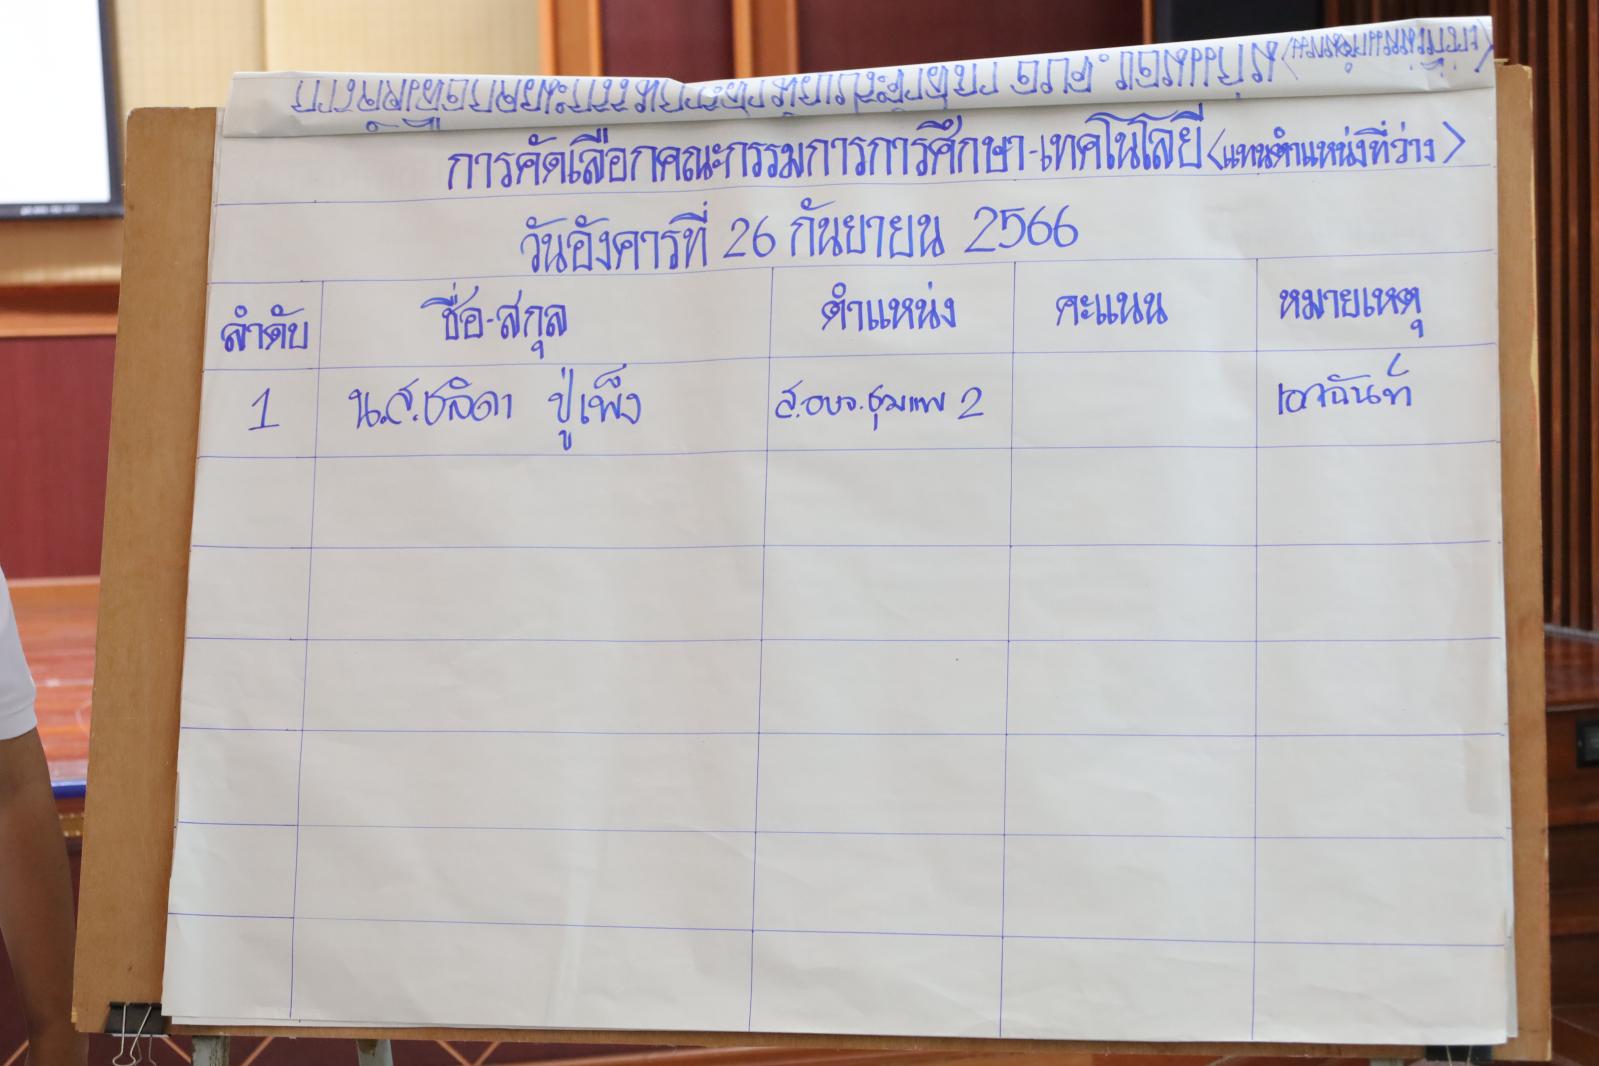 การคัดเลือกคณะกรรมการการศึกษา-เทคโนโลยี <แทนตำแหน่งที่ว่าง>
วันอังคารที่ 26 กันยายน 2566
ลำดับ ชื่อ-สกุล ตำแหน่ง คะแนน หมายเหตุ
1 น.ส.ชลิดา ปู่เพ็ง ส.อบจ.ชุมแพ 2 เอกฉันท์